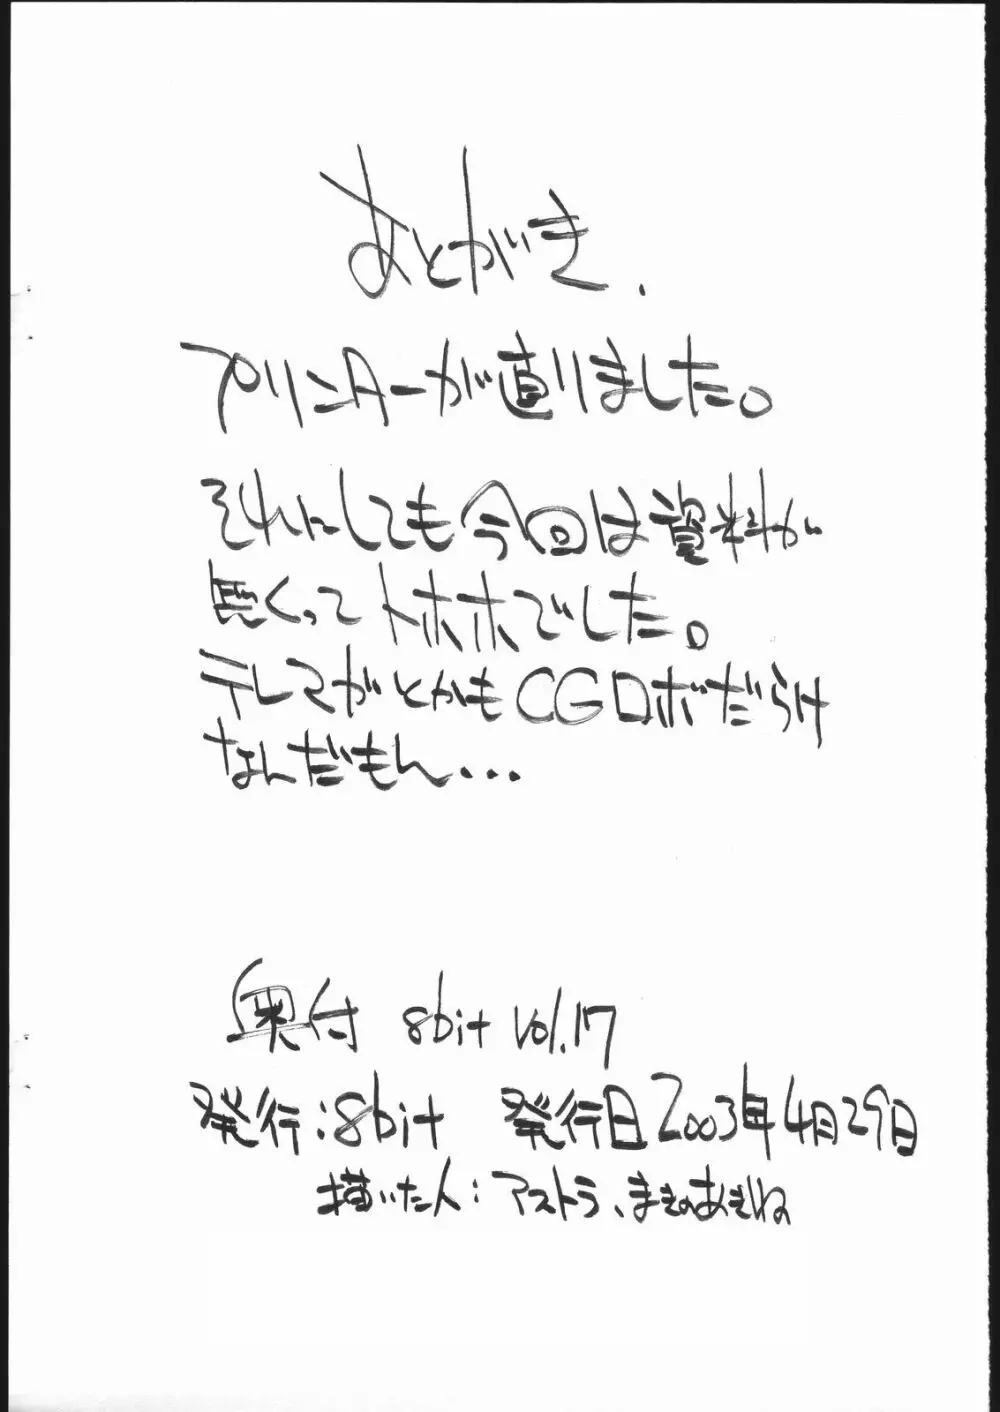 あとがき.
プリンターが直りました。
それにしても今回は資料が
無くってトホホでした。
テレマガとかもCGロボだらけ
なんだもん...
奥付 8bit vol.17
発行:8bit 発行日2003年4月29日
描いた人:アストラ、まきのあきね